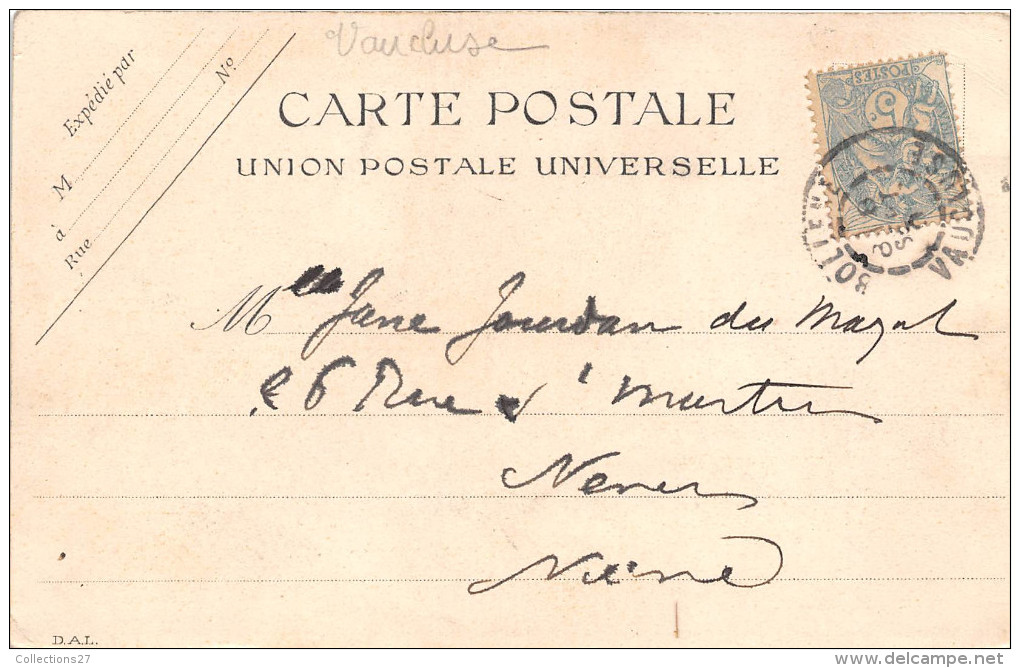 Vaucluse
Expédié par
M
à
Rue
No
CARTE POSTALE
UNION POSTALE UNIVERSELLE
POSTES
5
BOLLENE
VAUCLUSE
Mlle Jane Jourdan du Mazat
26 Rue St Martin
Nevers
Nièvre
D.A.L.
Collections27
delcampe.net